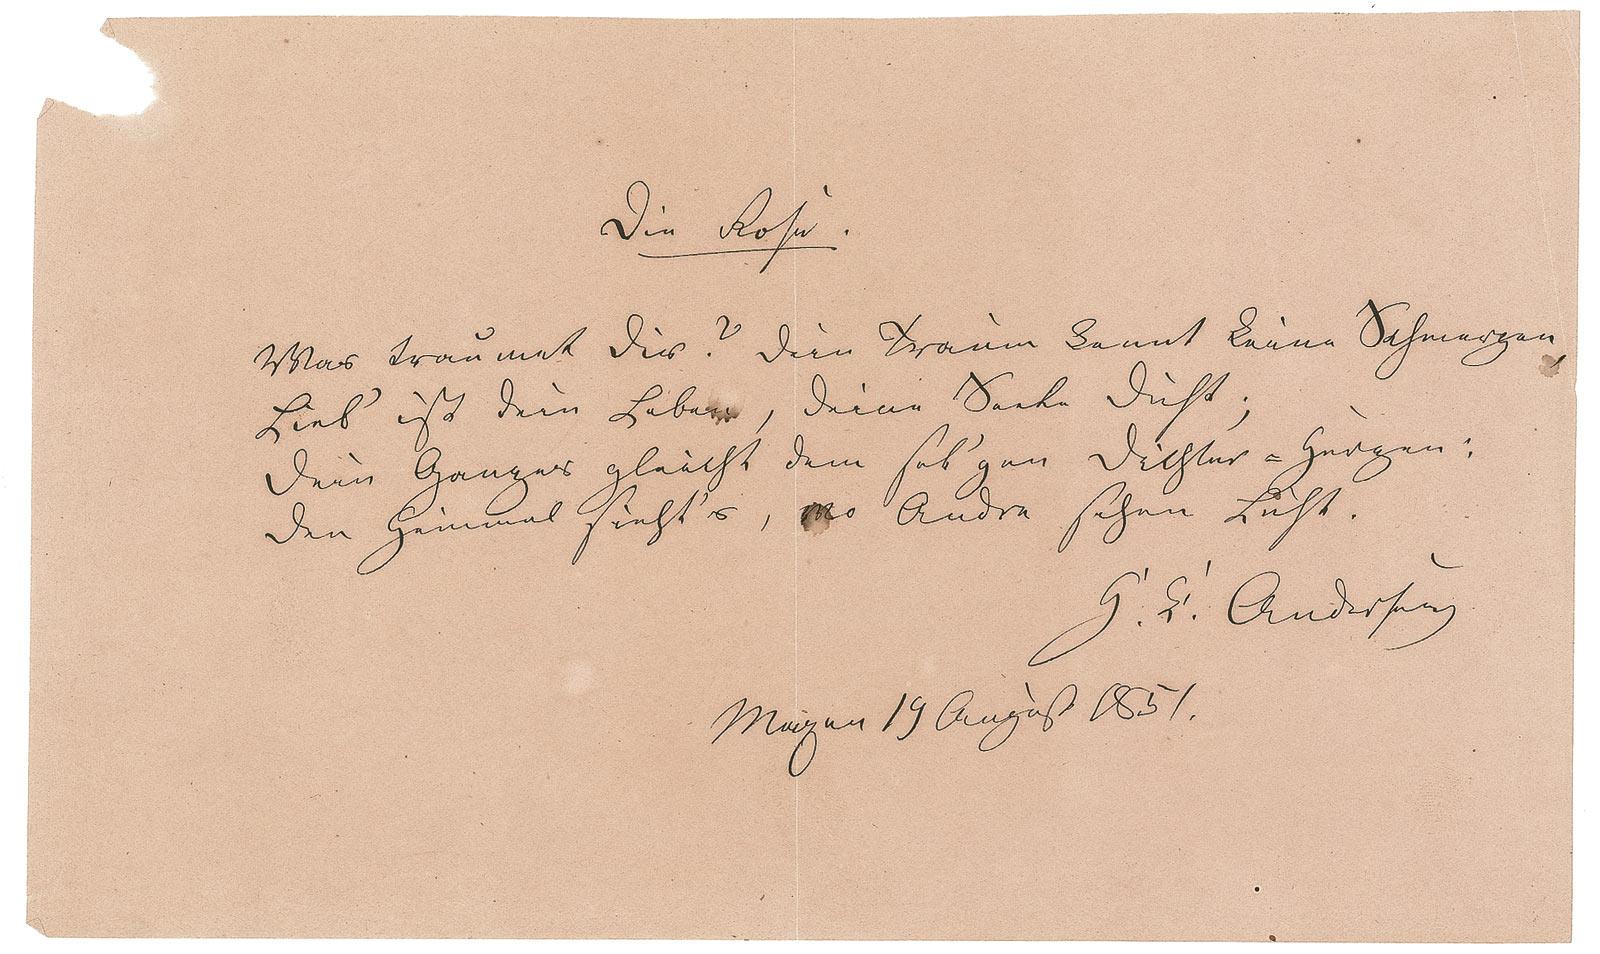 Die Rose.
Was traumet dir? dein Traum kennt keine Schmerzen
Lieb' ist dein Leben, deine Seele Duft;
dein Ganzes gleicht dem sel'gen Dichter=Herzen:
den Himmel sieht's, wo Andre sehen Luft.
H. C. Andersen
Maxen 19 August 1851.